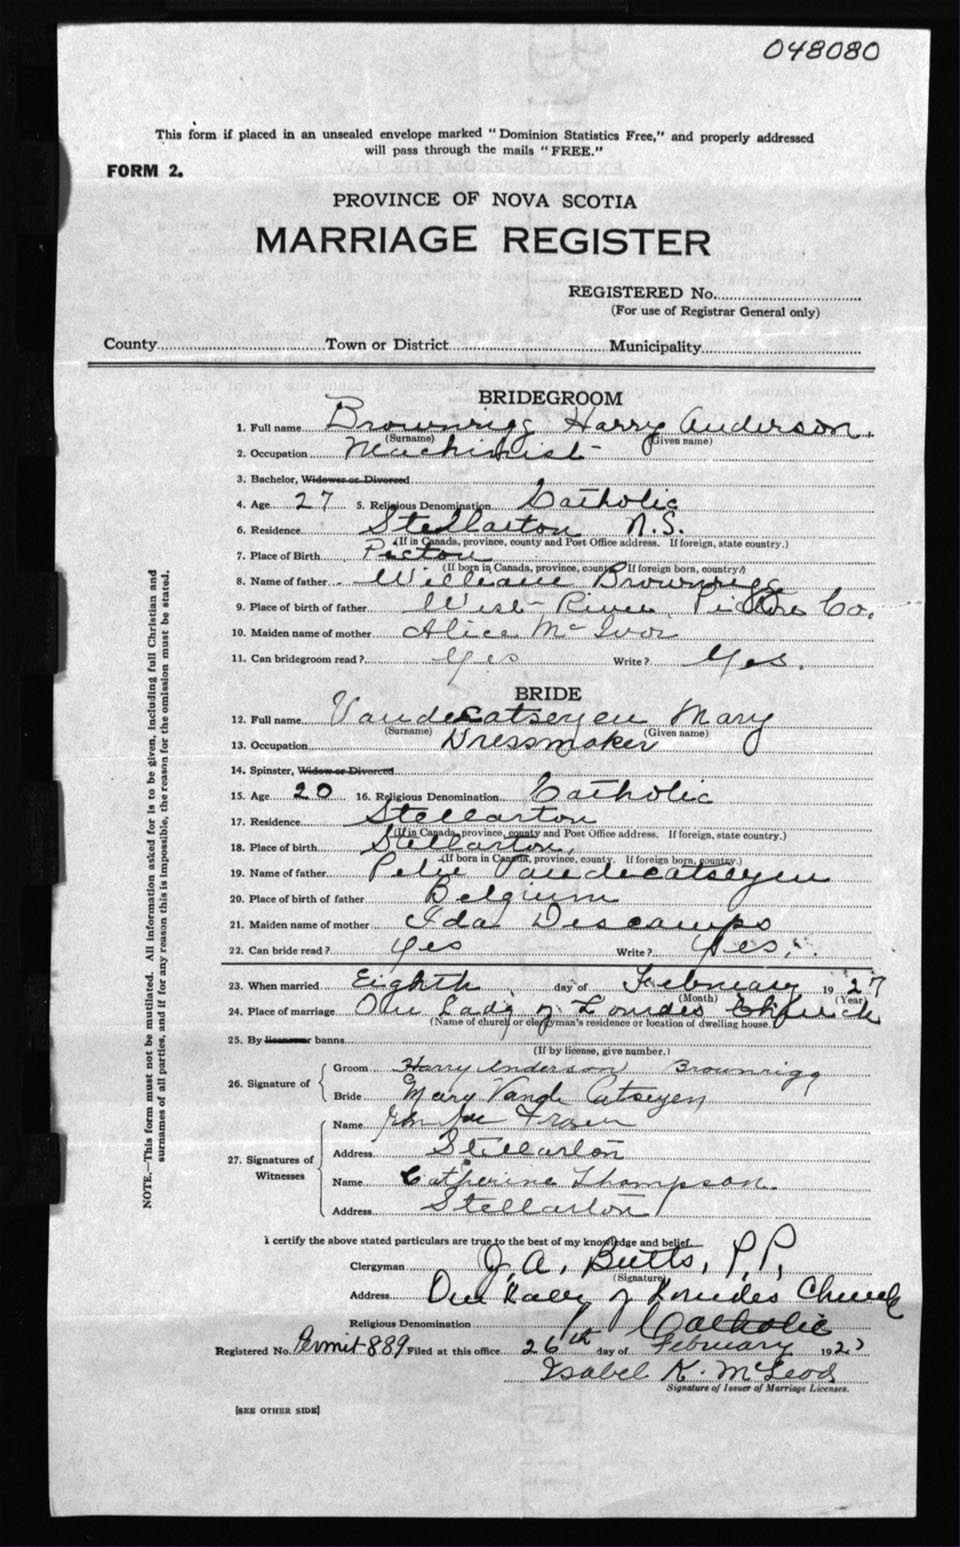 048080
This form if placed in an unsealed envelope marked "Dominion Statistics Free," and properly addressed
will pass through the mails "FREE."
FORM 2.
PROVINCE OF NOVA SCOTIA
MARRIAGE REGISTER
REGISTERED No.
(For use of Registrar General only)
County Town or District Municipality
BRIDEGROOM
1. Full name Brownrigg Harry Anderson.
(Surname) (Given name)
2. Occupation Machinist
3. Bachelor, Widower or Divorced
4. Age 27 5. Religious Denomination Catholic
6. Residence Stellarton N.S.
(If in Canada, province, county and Post Office address. If foreign, state country.)
7. Place of Birth Pictou
(If born in Canada, province, county. If foreign born, country.)
8. Name of father William Brownrigg
9. Place of birth of father West River Pictou Co.
10. Maiden name of mother Alice McIvor
11. Can bridegroom read? Yes Write? Yes.
BRIDE
12. Full name Vandecatseyen Mary
(Surname) (Given name)
13. Occupation Dressmaker
14. Spinster, Widow or Divorced
15. Age 20 16. Religious Denomination Catholic
17. Residence Stellarton
(If in Canada, province, county and Post Office address. If foreign, state country.)
18. Place of birth Stellarton,
(If born in Canada, province, county. If foreign born, country.)
19. Name of father Vandecatseyen
20. Place of birth of father Belgium
21. Maiden name of mother Ida Descamps
22. Can bride read? yes Write? Yes.
23. When married Eighth day of February 1927
(Month) (Year)
24. Place of marriage Our Lady of Lourdes Church
(Name of church or clergyman's residence or location of dwelling house.)
25. By license or banns
(If by license, give number.)
26. Signature of
Groom Harry Anderson Brownrigg
Bride Mary Vande Catseyen
27. Signatures of Witnesses
Name Fraser
Address Stellarton
Name Catherine Thompson.
Address Stellarton
I certify the above stated particulars are true to the best of my knowledge and belief.
Clergyman J. A. Butts, P.P.
(Signature)
Address Our Lady of Lourdes Church
Religious Denomination Catholic
Registered No. Permit 889 Filed at this office 26th day of February 1927
Isabel K. McLeod
Signature of Issuer of Marriage Licenses.
[SEE OTHER SIDE]
NOTE.—This form must not be mutilated. All information asked for is to be given, including full Christian and
surnames of all parties, and if for any reason this is impossible, the reason for the omission must be stated.